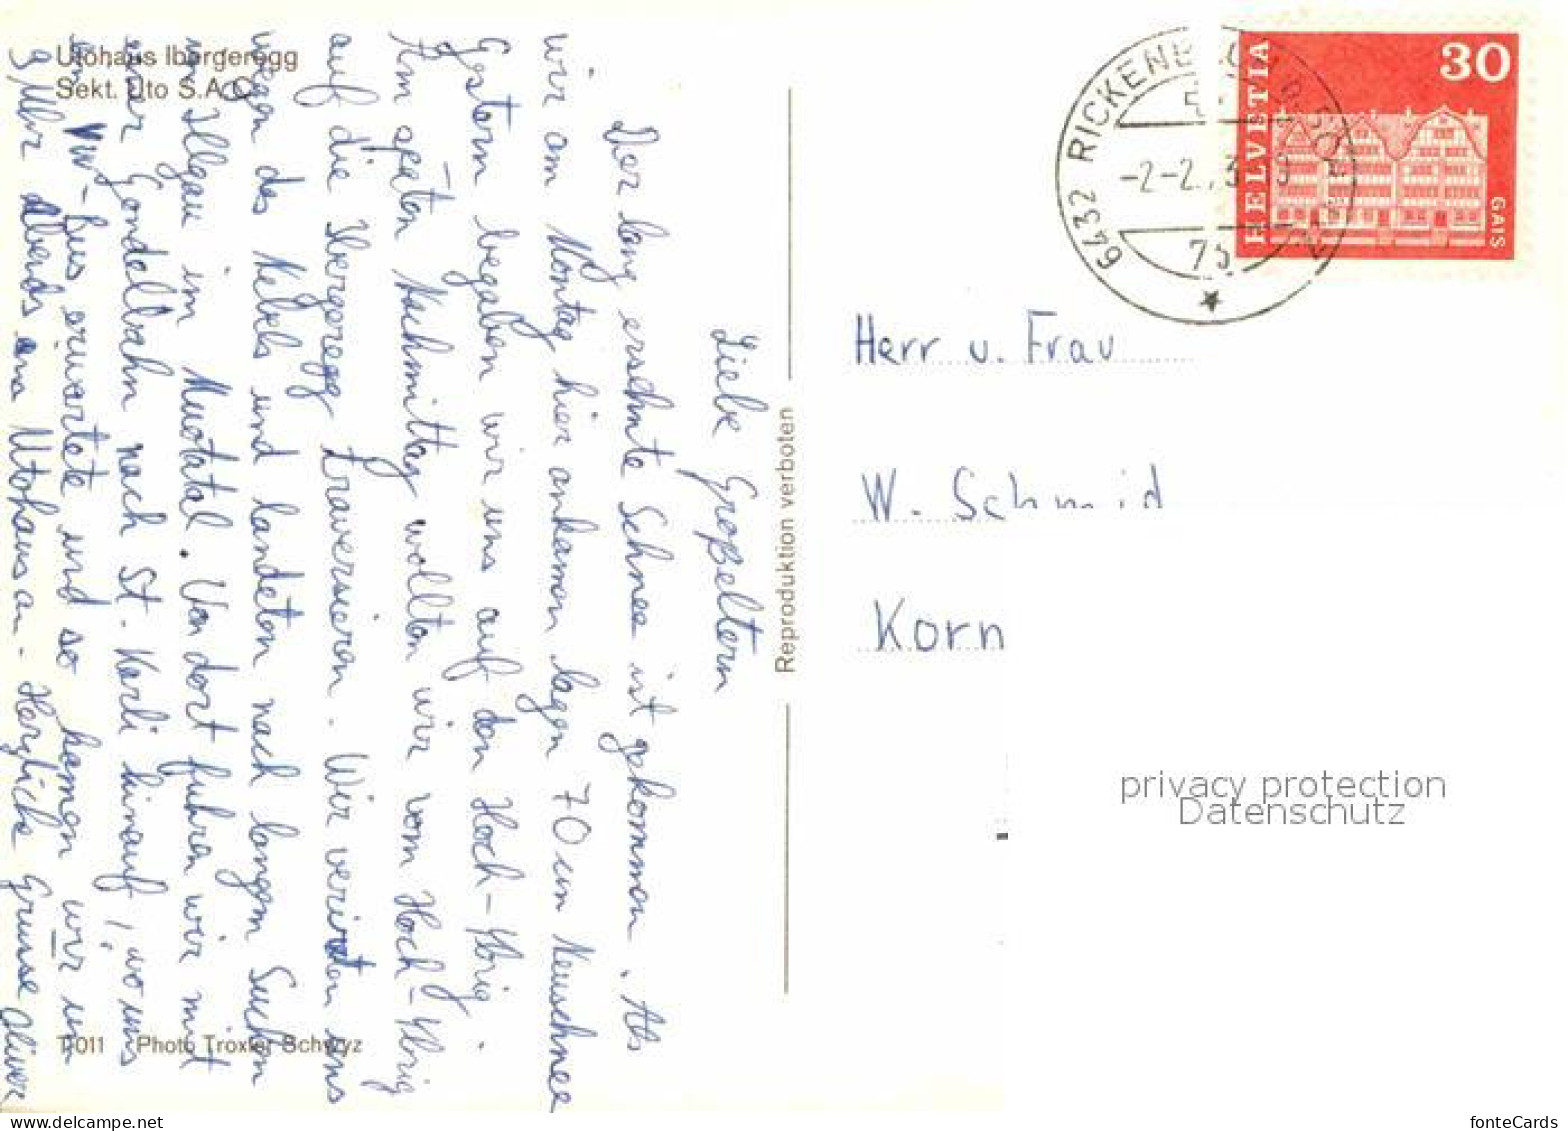 Utohaus Ibergeregg
Sekt. Uto S.A.C.
Liebe Großeltern
Der lang ersehnte Schnee ist gekommen. Als
wir am Montag hier ankamen lagen 70 cm Neuschnee
Gestern begaben wir uns auf den Hoch-Ybrig.
Am späten Nachmittag wollten wir vom Hoch-Ybrig
auf die Ibergeregg traversieren. Wir verirrten uns
wegen des Nebels und landeten nach langem Suchen
in Illgau im Muotatal. Von dort fuhren wir mit
einer Gondelbahn nach St. Karli hinauf, wo uns
ein VW-Bus erwartete und so kamen wir um
9 Uhr Abends im Utohaus an. Herzliche Grüsse Oliver
T 011 Photo Troxler Schwyz
Reproduktion verboten
6432 RICKENB
-2-2.73
73
HELVETIA
30
GAIS
Herr u. Frau
W. Schmid
Korn
privacy protection
Datenschutz
www.delcampe.net
fonteCards